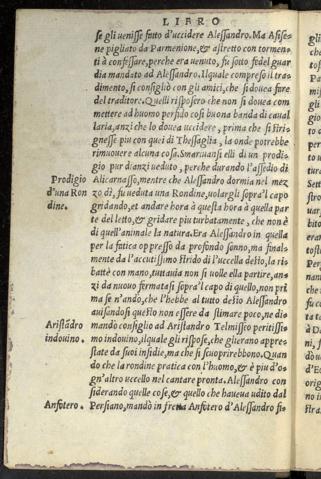 LIBRO
se gli uenisse fatto d'uccidere Alessandro. Ma Asise=
ne pigliato da Parmenione,& astretto con tormen=
ti à confessare, perche era uenuto, fu sotto fedel guar
dia mandato ad Alessandro. Ilquale compreso il tra=
dimento, si consigliò con gli amici, che si douea fare
del traditore. Quelli risposero che non si douea com
mettere ad huomo perfido cosi buona banda di caual
laria, anzi che lo douea uccidere, prima che si stri=
gnesse piu con quei di Thessaglia, la onde potrebbe
rimuouere alcuna cosa. Smaruansi elli di un prodi=
gio pur dianzi ueduto, perche durando l'assedio di
Prodigio Alicarnasso, mentre che Alessandro dormia nel mez
d'una Ron zo dì, fu ueduta una Rondine, uolargli sopra'l capo
dine. gridando, et andare hora à questa hora à quella par
te del letto,& gridare piu turbatamente, che non è
di quell'animale la natura. Era Alessandro in quella
per la fatica oppresso da profondo sonno, ma final=
mente da l'acutissimo strido di l'uccella desto, la ri=
battè con mano, tuttauia non si uolle ella partire, an=
zi da nuouo fermatasi sopra'l capo di quello, non pri
ma se n'andò, che l'hebbe al tutto desto Alessandro
auisandosi questo non essere da stimare poco, ne di=
Aristādro mandò consiglio ad Aristandro Telmisseo peritissi=
indouino. mo indouino, ilquale gli rispose, che gli erano appre=
state da suoi insidie, ma che si scuoprirebbono. Quan
do che la rondine pratica con l'huomo,& è piu d'o=
gn'altro uccello nel cantare pronta. Alessandro con
siderando quelle cose,& quello che haueua udito dal
Anfotero. Persiano, mandò in fretta Anfotero d'Alessandro fi=